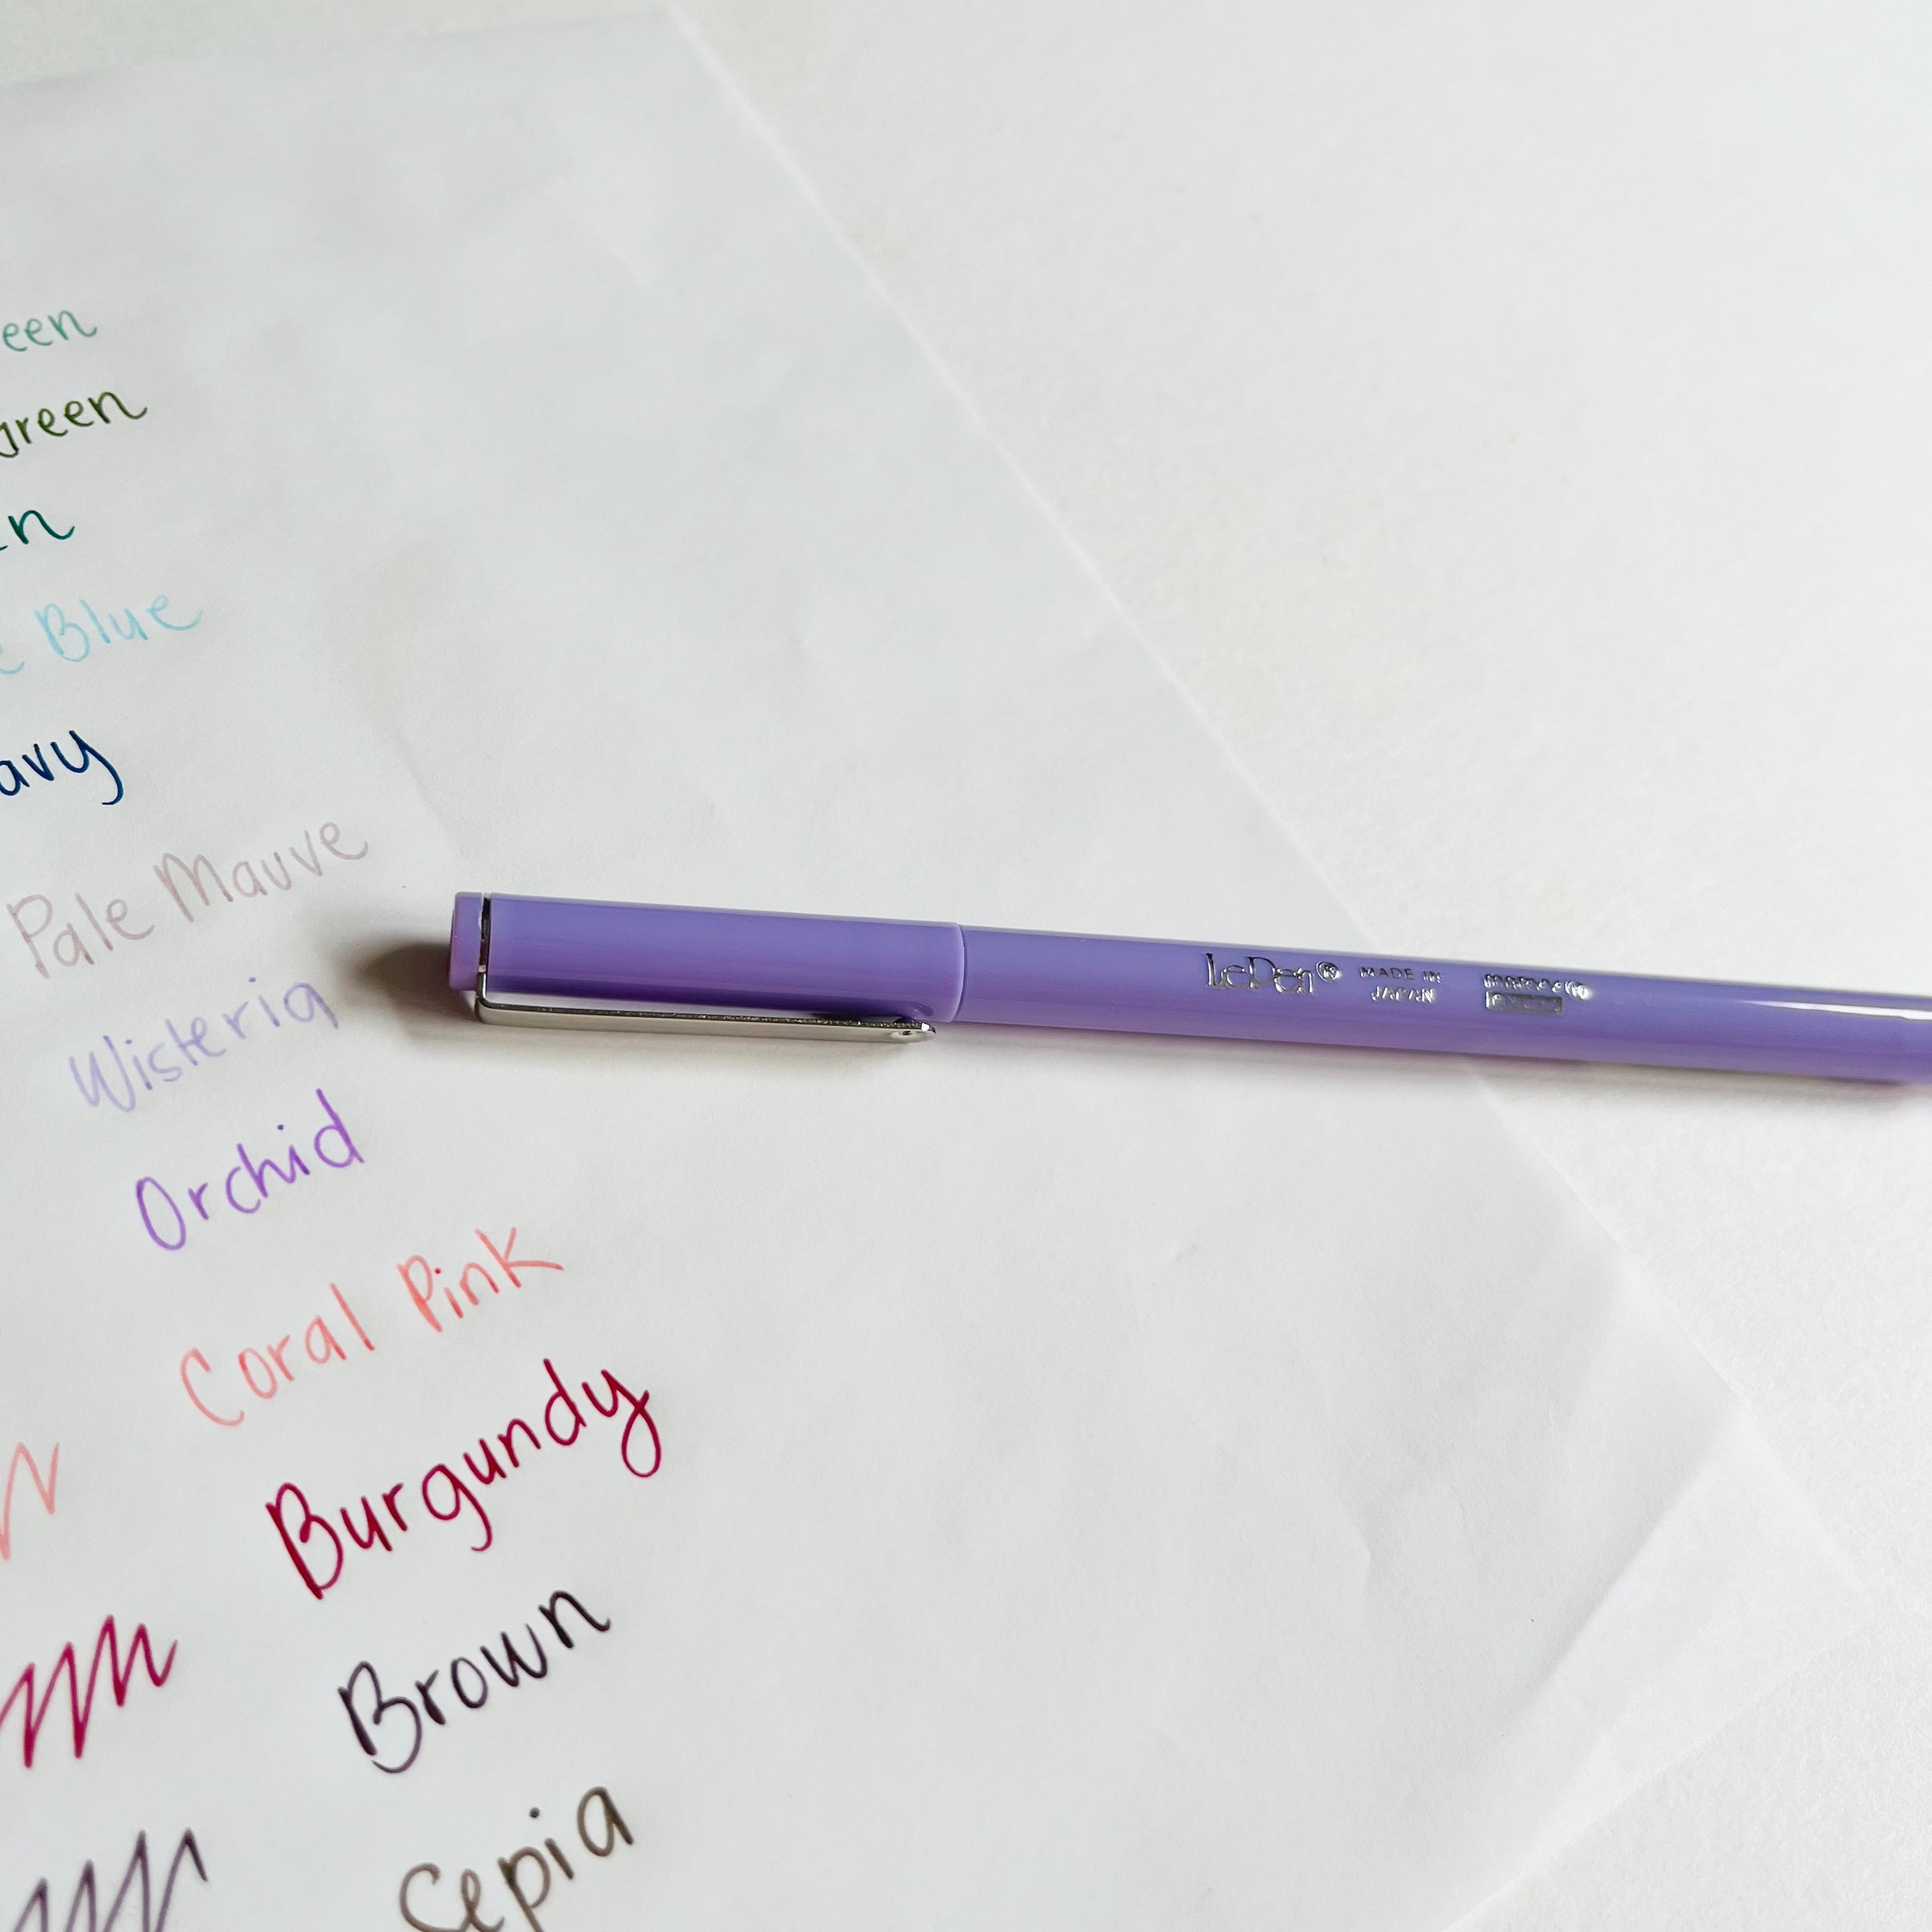 een
green
en
e Blue
avy
Pale Mauve
Wisteria
Orchid
Coral Pink
Burgundy
Brown
Sepia
LePen® MADE IN JAPAN